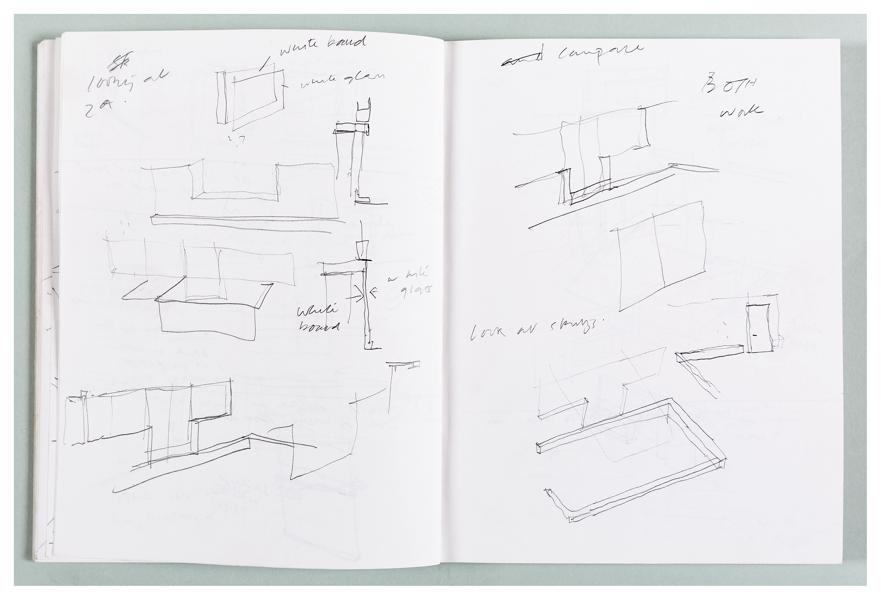 looking at
2a.
white board
white glass
white
glass
white
board
and compare
BOTH
work
look at